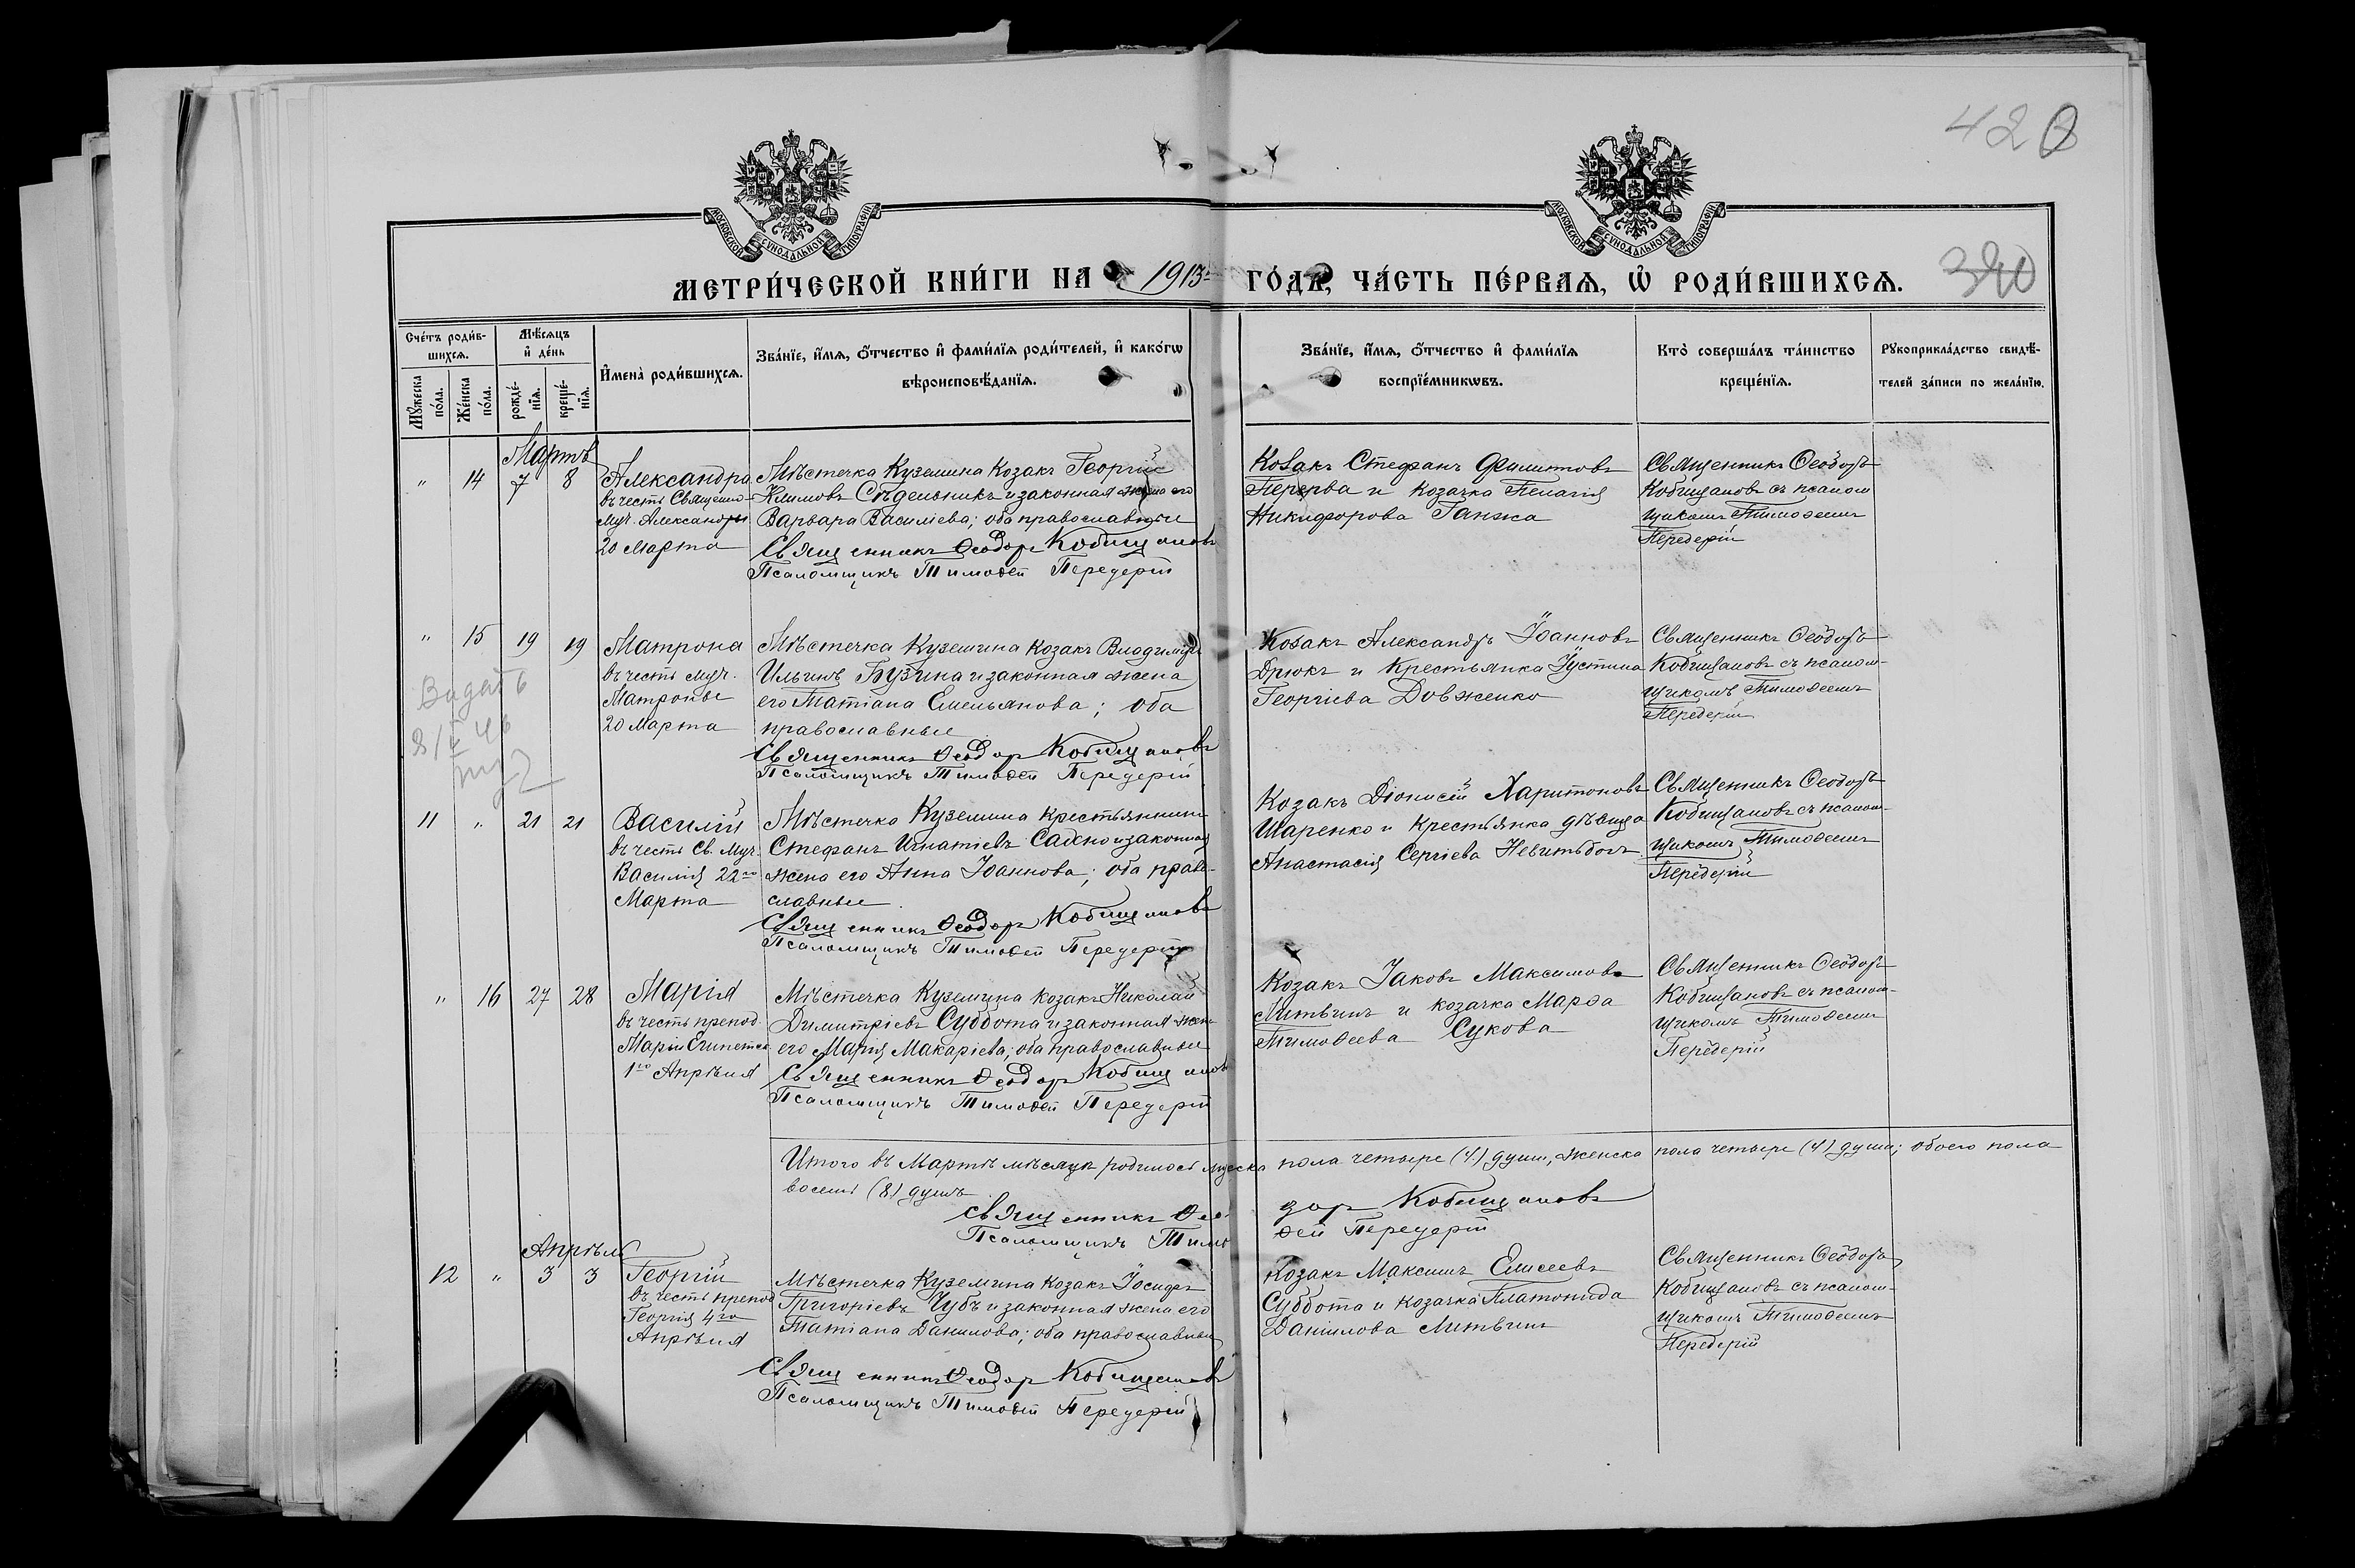 420
390
МОСКОВСКОЙ СѴНОДАЛЬНОЙ ТИПОГРАФІИ
МОСКОВСКОЙ СѴНОДАЛЬНОЙ ТИПОГРАФІИ
МЕТРИ́ЧЕСКОЙ КНИ́ГИ НА 1913 ГО́ДЪ, ЧА́СТЬ ПЕ́РВАѦ, Ѡ҆ РОДИ́ВШИХСѦ.
Сче́тъ роди́вшихсѧ.
Му́жеска по́ла.
Же́нска по́ла.
Мѣ́сѧцъ и҆ де́нь
рожде́нїѧ.
креще́нїѧ.
И҆мена̀ роди́вшихсѧ.
Зва́нїе, и҆́мѧ, ѻ҆́тчество и҆ фами́лїѧ роди́телей, и҆ како́гѡ
вѣроисповѣ́данїѧ.
Зва́нїе, и҆́мѧ, ѻ҆́тчество и҆ фами́лїѧ
воспрїе́мникѡвъ.
Кто̀ соверша́лъ та́инство
креще́нїѧ.
Рꙋкоприкла́дство свидѣ́-
телей за́писи по жела́нїю.
Мартъ
" 14 7 8
Александра
въ честь Священно-
муч. Александры
20 Марта
Мѣстечка Куземина козакъ Георгій
Климовъ Сѣдельникъ и законная жена его
Варвара Василіева; оба православные
Священникъ Ѳеодоръ Кобищановъ
Псаломщикъ Тимоѳей Передерій
Козакъ Стефанъ Филиповъ
Перерва и козачка Пелагія
Никифорова Ганжа
Священникъ Ѳеодоръ
Кобищановъ съ псалом
щикомъ Тимоѳеемъ
Передерій
" 15 19 19
Матрона
въ честь муч.
Матроны
20 Марта
Мѣстечка Куземина козакъ Владиміръ
Ильинъ Бузина и законная жена
его Татіана Емельянова; оба
православные
Священникъ Ѳеодоръ Кобищановъ
Псаломщикъ Тимоѳей Передерій
Козакъ Александръ Іоанновъ
Дрюкъ и крестьянка Іустина
Георгіева Довженко
Священникъ Ѳеодоръ
Кобищановъ съ псалом-
щикомъ Тимоѳеемъ
Передерій
11 " 21 21
Василій
въ честь Св. Муч.
Василія 22го
Марта
Мѣстечка Куземина крестьянинъ
Стефанъ Игнатіевъ и законная
жена его Анна Іоаннова; оба право-
славные
Священникъ Ѳеодоръ Кобищановъ
Псаломщикъ Тимоѳей Передерій
Козакъ Діонисій Харитоновъ
Шаренко и крестьянка дѣвица
Анастасія Сергіева
Священникъ Ѳеодоръ
Кобищановъ съ псалом-
щикомъ Тимоѳеемъ
Передерій
" 16 27 28
Марія
въ честь препод.
Маріи Египетск.
1го Апрѣля
Мѣстечка Куземина козакъ Николай
Димитріевъ Суббота и законная жена
его Марія Макаріева; оба православные
Священникъ Ѳеодоръ Кобищановъ
Псаломщикъ Тимоѳей Передерій
Козакъ Іаковъ Максимовъ
Литвинъ и козачка Марѳа
Тимоѳеева Сукова
Священникъ Ѳеодоръ
Кобищановъ съ псалом-
щикомъ Тимоѳеемъ
Передерій
Итого въ Мартѣ мѣсяцѣ родилось мужеска пола четыре (4) души, женска пола четыре (4) души; обоего пола
восемь (8) душъ
Священникъ Ѳеодоръ Кобищановъ
Псаломщикъ Тимоѳей Передерій
Апрѣль
12 " 3 3
Георгій
въ честь препод.
Георгія 4го
Апрѣля
Мѣстечка Куземина козакъ Іосифъ
Григоріевъ Чубъ и законная жена его
Татіана Данилова; оба православные
Священникъ Ѳеодоръ Кобищановъ
Псаломщикъ Тимоѳей Передерій
Козакъ Максимъ Елисеевъ
Суббота и козачка Платонида
Даніилова Литвинъ
Священникъ Ѳеодоръ
Кобищановъ съ псалом-
щикомъ Тимоѳеемъ
Передерій